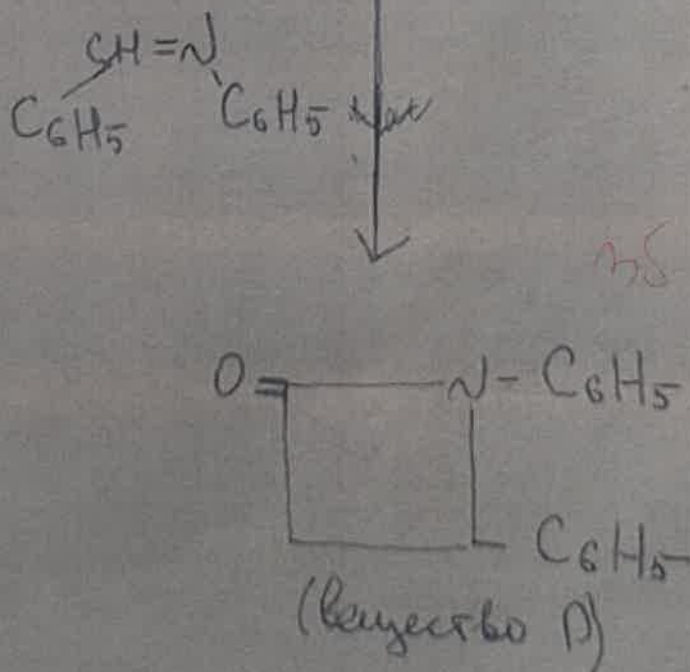 CH=N
C6H5 C6H5
O= N-C6H5
C6H5
(вещество D)